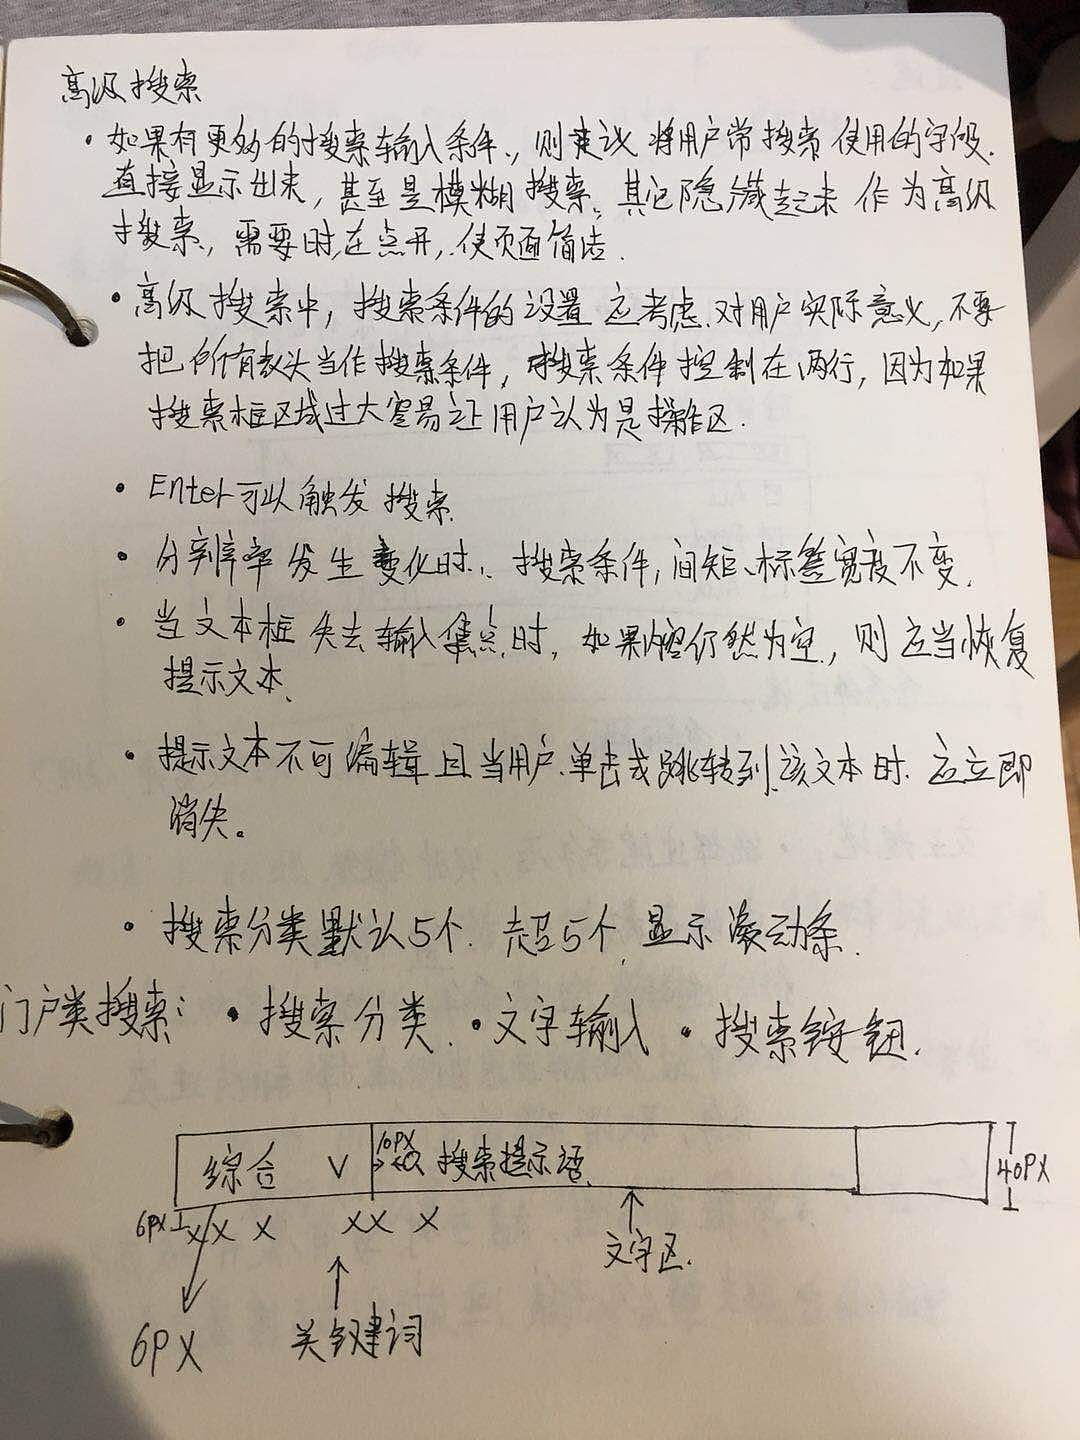 高级搜索
· 如果有更多的搜索输入条件、则建议 将用户常搜索 使用的字段.
直接显示出来，甚至是模糊搜索、其它隐藏起来 作为高级
搜索、需要时在点开，使页面简洁.
· 高级搜索中，搜索条件的设置 应考虑 对用户实际意义，不要
把所有表头当作搜索条件，搜索条件控制在两行，因为如果
搜索框区域过大容易让用户认为是操作区.
· Enter可以触发搜索
· 分辨率发生变化时、搜索条件，间矩、标签宽度不变.
· 当文本框失去输入焦点时，如果内容仍然为空，则应当恢复
提示文本.
· 提示文本不可编辑且当用户单击或跳转到该文本时 应立即
消失。
· 搜索分类默认5个. 超5个 显示滚动条.
门户类搜索: · 搜索分类. · 文字输入 · 搜索铵钮.
综合 V 10PX 搜索提示语. 40PX
6PX XX X XX X
文字区.
6PX 关键词